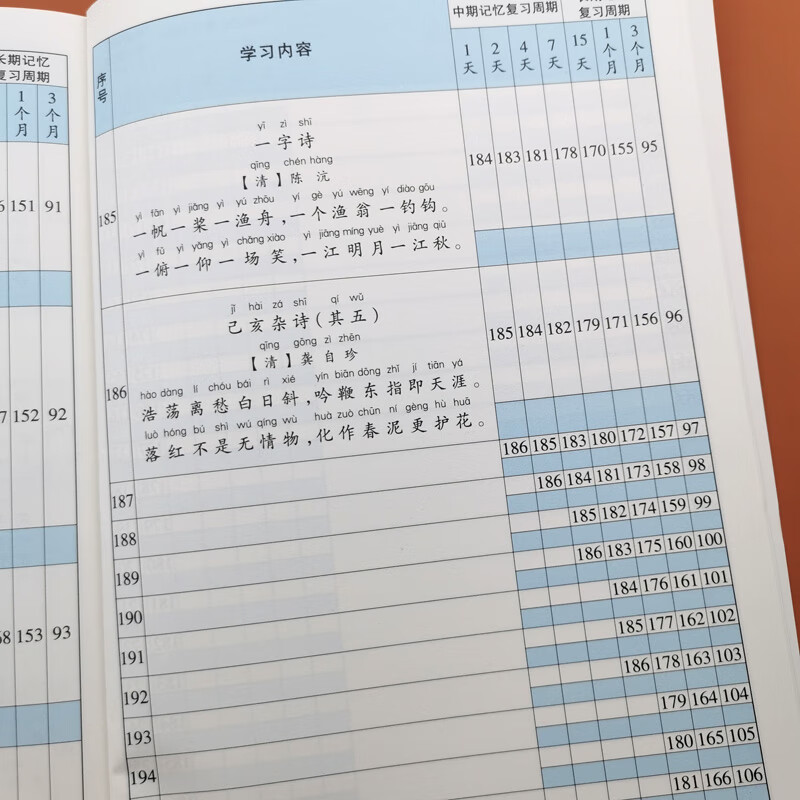 长期记忆
复习周期
1个月 3个月
151 91
152 92
153 93
序号 学习内容 中期记忆复习周期 复习周期
1天 2天 4天 7天 15天 1个月 3个月
yī zì shī
一字诗
qīng chén hàng
【清】陈沆
185 184 183 181 178 170 155 95
yì fān yì jiǎng yì yú zhōu yí gè yú wēng yí diào gōu
一帆一桨一渔舟，一个渔翁一钓钩。
yì fǔ yì yǎng yì chǎng xiào yì jiāng míng yuè yì jiāng qiū
一俯一仰一场笑，一江明月一江秋。
jǐ hài zá shī qí wǔ
己亥杂诗（其五）
qīng gōng zì zhēn
【清】龚自珍
186 185 184 182 179 171 156 96
hào dàng lí chóu bái rì xié yín biān dōng zhǐ jí tiān yá
浩荡离愁白日斜，吟鞭东指即天涯。
luò hóng bú shì wú qíng wù huà zuò chūn ní gèng hù huā
落红不是无情物，化作春泥更护花。
187 186 185 183 180 172 157 97
188 186 184 181 173 158 98
189 185 182 174 159 99
190 186 183 175 160 100
191 184 176 161 101
192 185 177 162 102
193 186 178 163 103
194 179 164 104
180 165 105
181 166 106